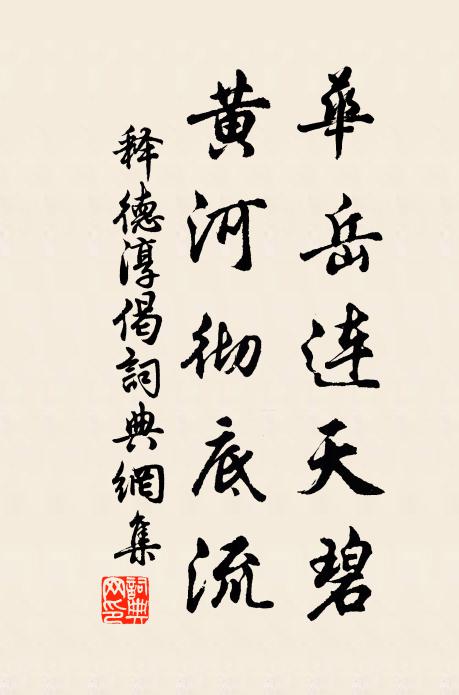 華岳連天碧
黄河彻底流
释德淳偈詞典網集
詞典网印